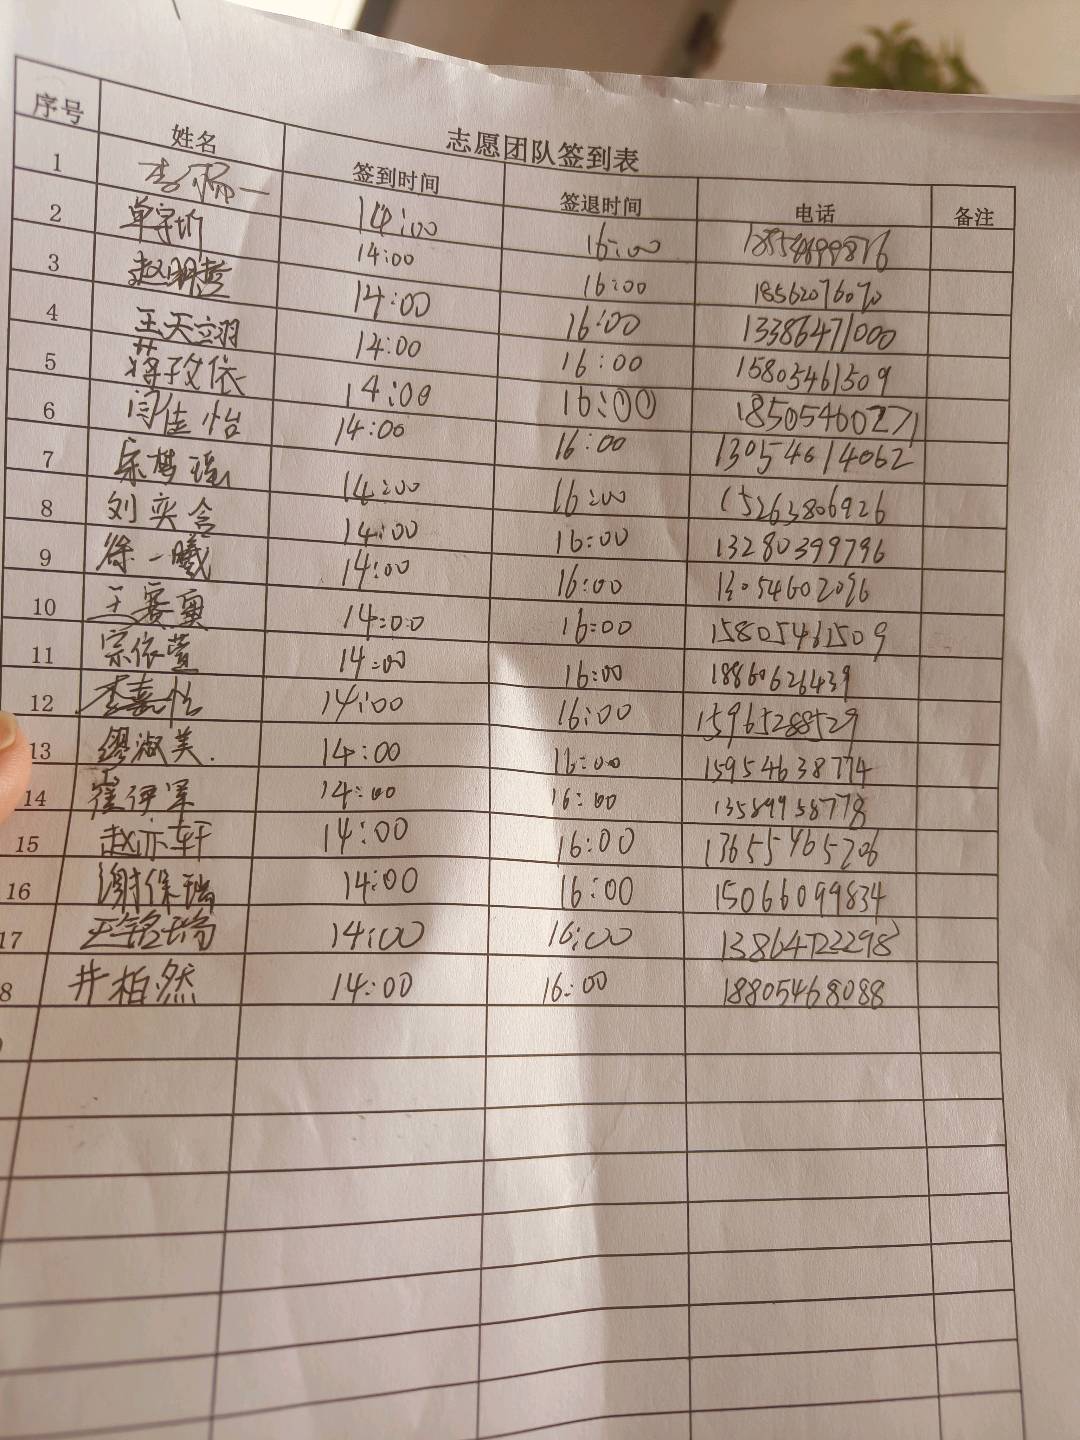 志愿团队签到表
序号 姓名 签到时间 签退时间 电话 备注
1 李 一 14:00 16:00
2 卓宇昕 14:00 16:00 18562076070
3 赵明慧 14:00 16:00 13386471000
4 王天翊 14:00 16:00 15805461509
5 蒋孜依 14:00 16:00 18505460271
6 闫佳怡 14:00 16:00 13054614062
7 宋梦瑶 14:00 16:00 15263806926
8 刘奕含 14:00 16:00 13280399796
9 徐一曦 14:00 16:00 13054602096
10 王赛奥 14:00 16:00 15805461509
11 宗依萱 14:00 16:00 18860626439
12 李嘉怡 14:00 16:00 15965288529
13 缪淑美. 14:00 16:00 15954638774
14 崔伊 14:00 16:00 13589958778
15 赵亦轩 14:00 16:00 13655465206
16 谢保瑞 14:00 16:00 15066099834
17 王铭瑞 14:00 16:00 13864722298
8 井柏然 14:00 16:00 18805468088